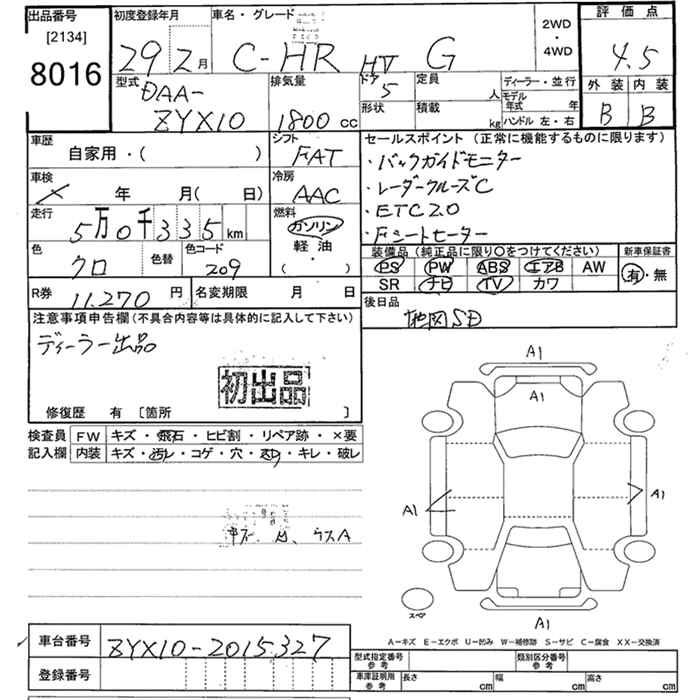 出品番号
[2134]
8016
初度登録年月
29 2月
車名・グレード
C-HR HV G
2WD
・
4WD
評価点
4.5
外装 内装
B B
型式
DAA-
ZYX10
排気量
1800 cc
ドア
5
定員
人
形状
積載
kg
ディーラー・並行
モデル
年式 年
ハンドル 左・右
車歴
自家用・( )
シフト
FAT
車検
年 月( 日)
冷房
AAC
走行
5万0千335km
燃料
ガソリン
軽油
( ・ )
色
クロ
色替
色コード
209
セールスポイント (正常に機能するものに限ります)
・バックガイドモニター
・レーダークルーズC
・ETC2.0
・Fシートヒーター
装備品 (純正品に限り○をつけてください)
PS PW ABS エアB AW
SR ナビ TV カワ
新車保証書
有・無
R券 11,270 円
名変期限 月 日
後日品
地図SD
注意事項申告欄 (不具合内容等は具体的に記入して下さい)
ディーラー出品
初出品
修復歴 有 [箇所 ]
検査員
記入欄
FW キズ・飛石・ヒビ割・リペア跡・×要
内装 キズ・汚レ・コゲ・穴・スレ・キレ・破レ
A1
A1
A1
A1
A1
スペア
A−キズ E−エクボ U−凹み W−補修跡 S−サビ C−腐食 XX−交換済
車台番号 ZYX10-2015327
登録番号
型式指定番号
参考
類別区分番号
参考
車庫証明用
参考
長さ cm 幅 cm 高さ cm